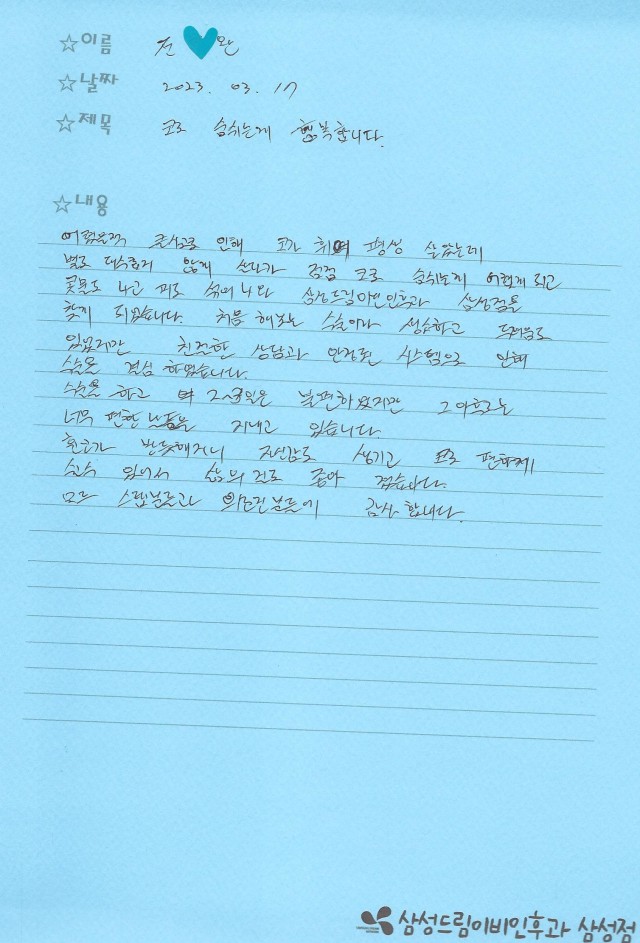 ☆이름 전 ♥ 완
☆날짜 2023. 03. 17
☆제목 코로 숨쉬는게 행복합니다.
☆내용
어렸을적 큰사고로 인해 코가 휘어 평생 살았는데
별로 대수롭지 않게 살다가 점점 코로 숨쉬는게 어렵게 되고
콧물도 나고 피로 섞여 나와 삼성드림이비인후과 삼성점을
찾게 되었습니다. 처음 해보는 수술이라 생소하고 두려움도
있었지만 친절한 상담과 안정된 시스템으로 인해
수술을 결심 하였습니다.
수술을 하고 약 2~3일은 불편하였지만 그 이후로는
너무 편한 나날을 지내고 있습니다.
휜코가 반듯해지니 자신감도 생기고 코로 편하게
쉴수 있어서 삶의 질도 좋아 졌습니다.
모든 스텝분들과 의료진분들께 감사 합니다.
삼성드림이비인후과 삼성점